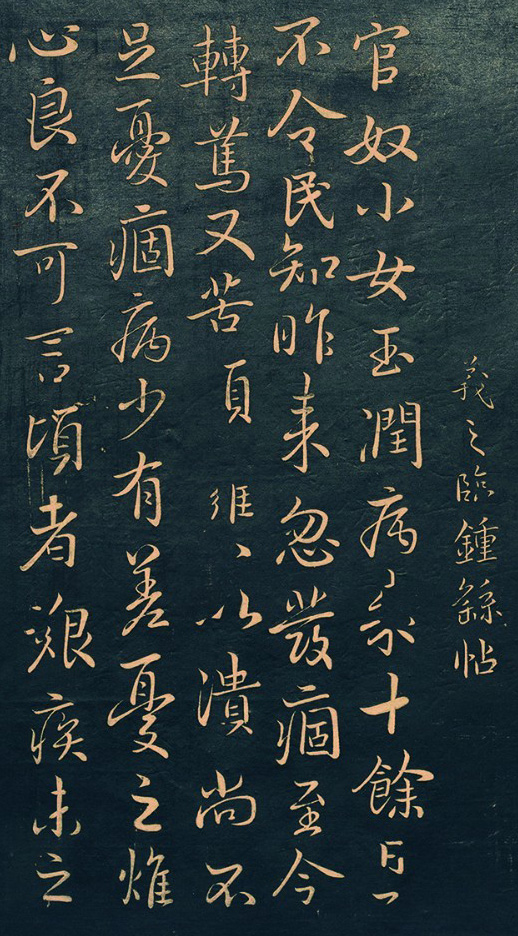 羲之臨鍾繇帖
官奴小女玉潤病来十餘日了
不令民知昨来忽發痼至今
轉篤又苦以潰尚不
足憂痼病少有差憂之燋
心良不可言頃者艱疾未之